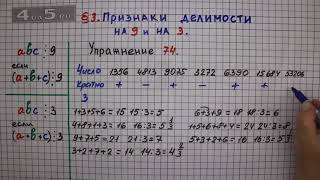 4a5.ru
§3. Признаки делимости
на 9 и на 3.
Упражнение 74.
abc ⋮ 9
если
(a+b+c) ⋮ 9
abc ⋮ 3
если
(a+b+c) ⋮ 3
Число 1356 4813 9075 3272 6390 15684 53206
Кратно + – + – + +
3
1+3+5+6=15 15:3=5
4+8+1+3=16 16:3=5⅓
9+7+5=21 21:3=7
3+2+7+2=14 14:3=4⅔
6+3+9=18 18:3=6
1+5+6+8+4=24 24:3=8
5+3+2+6=16 16:3=5⅓